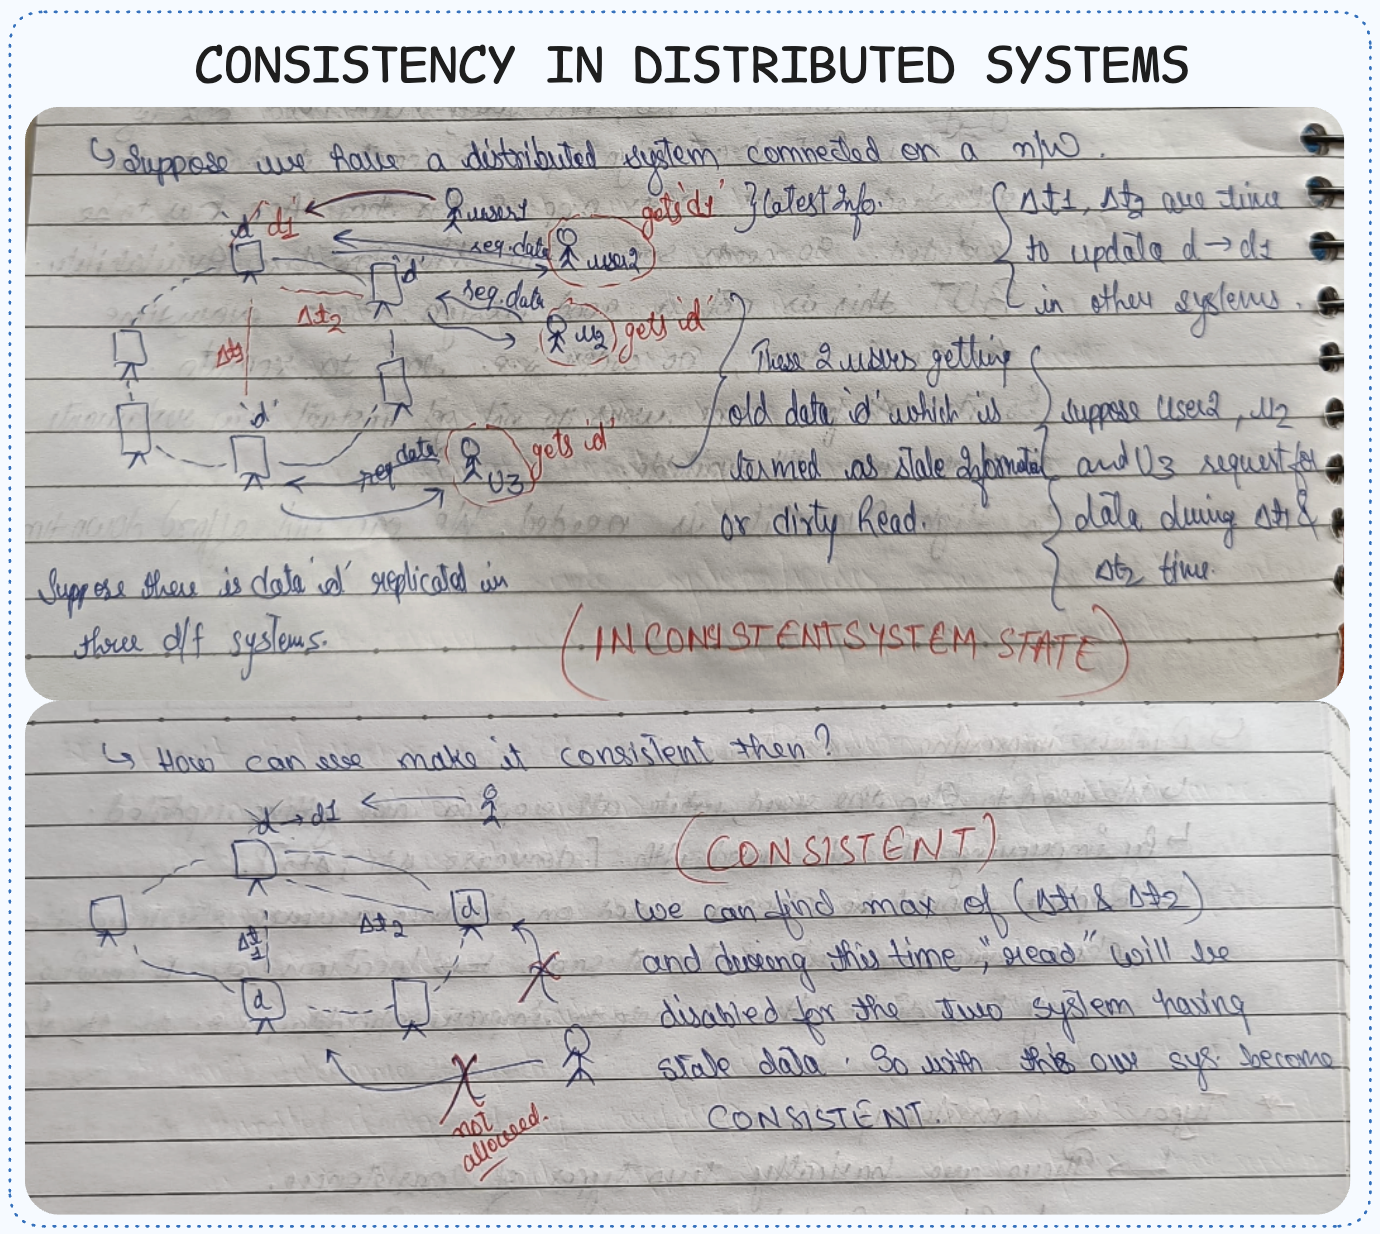 CONSISTENCY IN DISTRIBUTED SYSTEMS
↳ Suppose we have a distributed system connected on a n/w.
'd' 'd1'
user1
gets 'd1' } latest Info.
req. data
user2
'd'
req. data
u2
gets 'd'
Δt2
Δt1
'd'
req data
U3
gets 'd'
Δt1, Δt2 are time
to update d → d1
in other systems.
These 2 users getting
old data 'd' which is
termed as stale Information
or dirty Read.
Suppose User2, U2
and U3 request for
data during Δt1 &
Δt2 time.
Suppose there is data 'd' replicated in
three d/f systems.
(INCONSISTENT SYSTEM STATE)
↳ How can we make it consistent then?
d → d1
d
Δt2
Δt1
d
not
allowed.
(CONSISTENT)
we can find max of (Δt1 & Δt2)
and during this time, "read" will be
disabled for the two system having
stale data. So with this our sys. become
CONSISTENT.